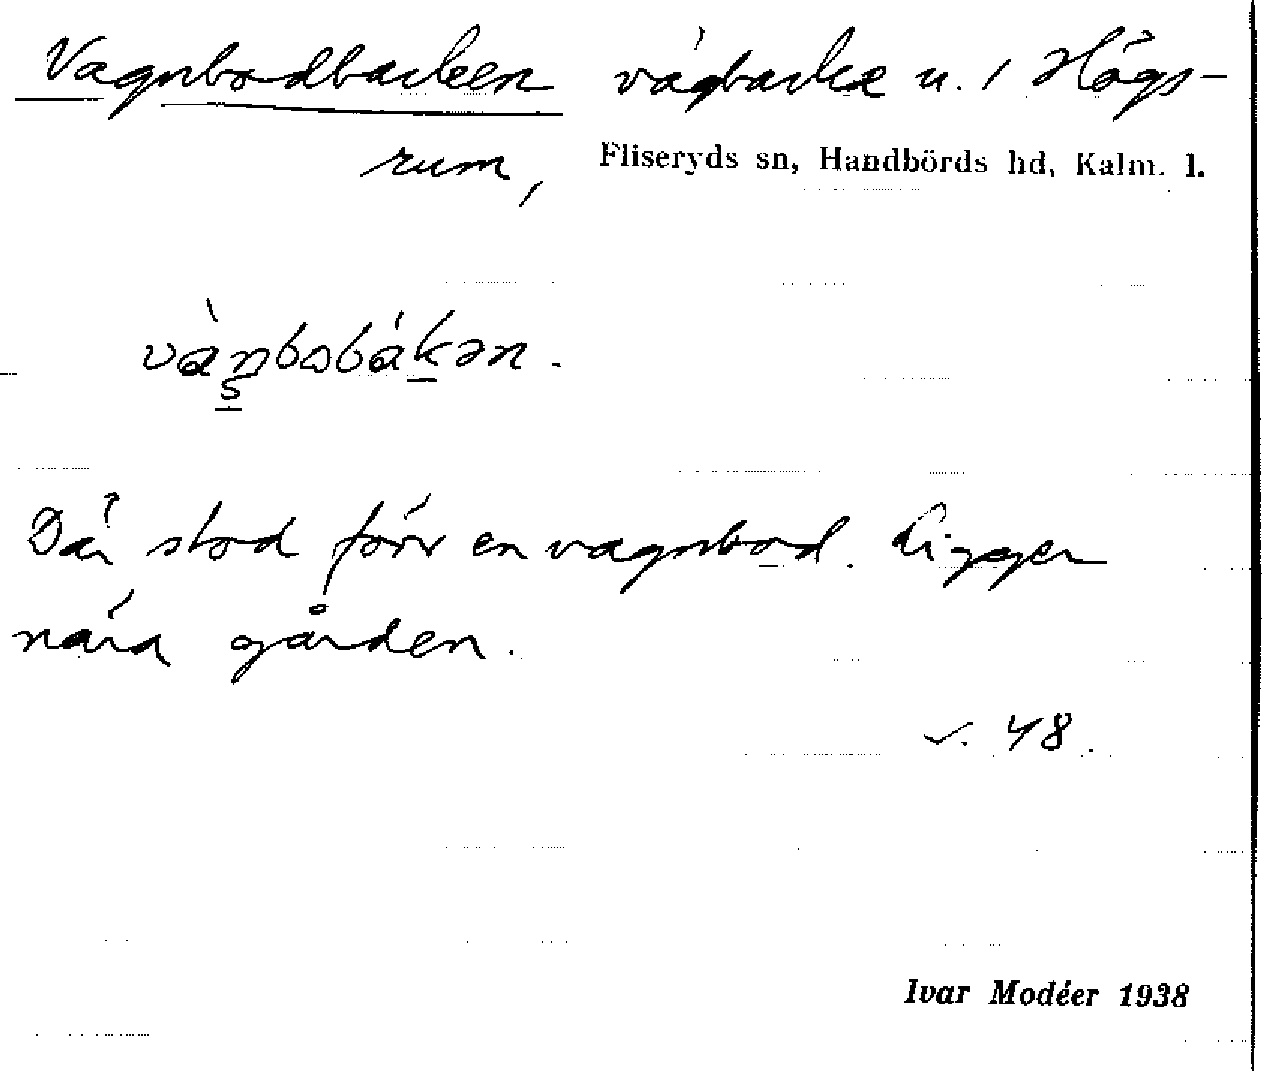 Vagnbodbacken vägbacke u. 1 Högs-
rum, Fliseryds sn, Handbörds hd, Kalm. l.
Där stod förr en vagnbod. Ligger
nära gården.
s. 48.
Ivar Modéer 1938